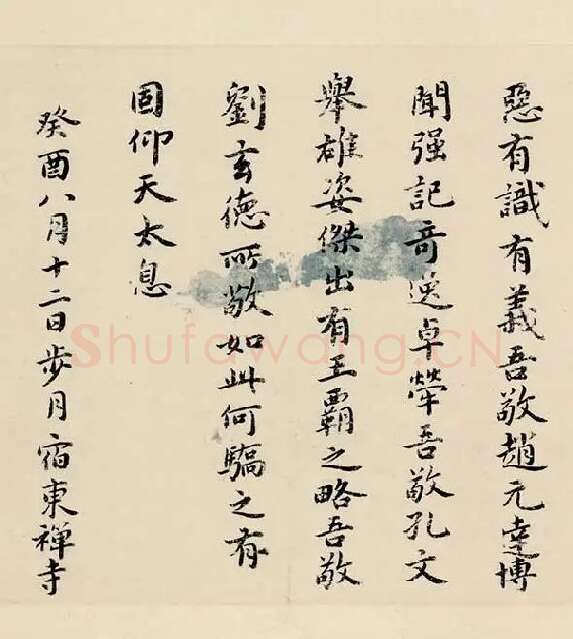 惡有識有義吾敬趙元達博
聞强記奇逸卓犖吾敬孔文
舉雄姿傑出有王霸之略吾敬
劉玄德所敬如此何驕之有
固仰天太息
癸酉八月十二日步月宿東禪寺
Shufawang.CN